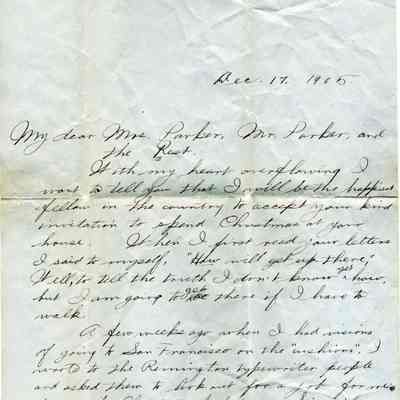 Dec. 17. 1905
My dear Mrs. Parker, Mr. Parker, and
the Rest.
With my heart overflowing I
want to tell you that I will be the happiest
fellow in the country to accept your kind
invitation to spend Christmas at your
house. When I first read your letters
I said to myself, "How will get up there,"
Well, to tell the truth I don't know yet how,
but I am going to get there if I have to
walk.
A few weeks ago when I had visions
of going to San Francisco on the "cushions", I
wrote to the Remington typewriter people
and asked them to look out for a job for me